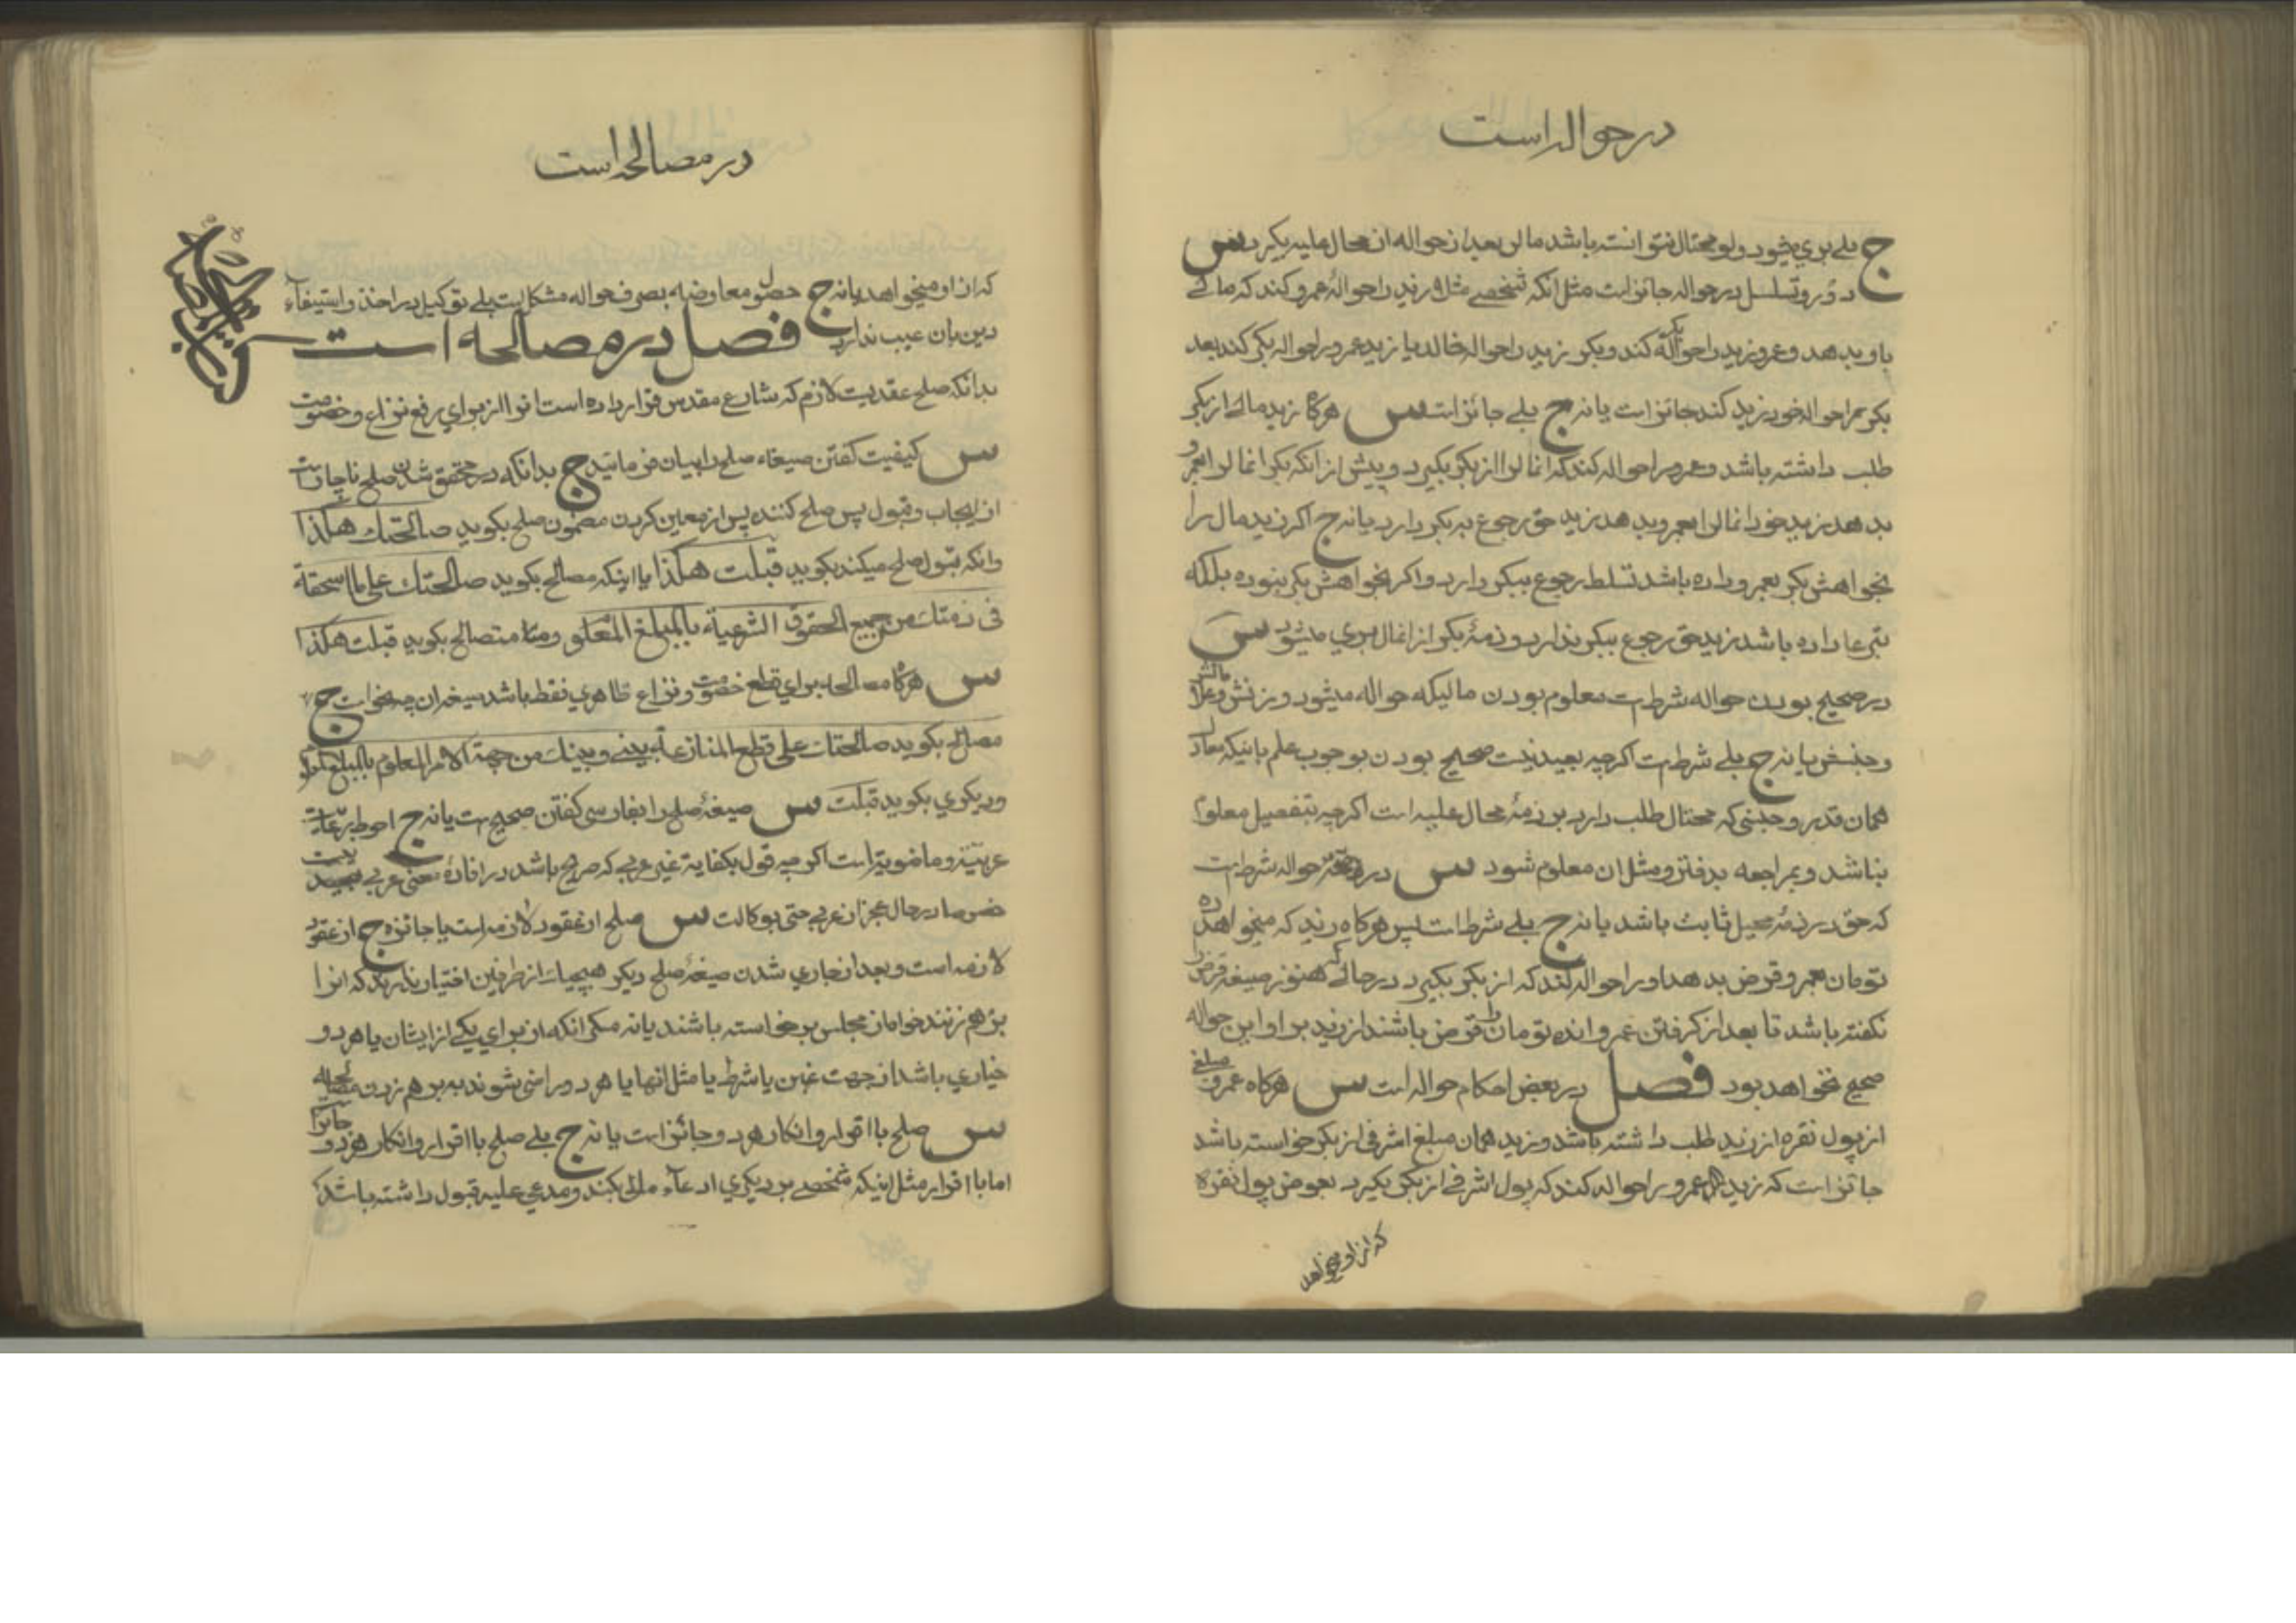 در حواله است
ج بلی بری میشود ولو محتال نتوانسته باشد مال را بعد از حواله از محال علیه بگیرد س
دور و تسلسل در حواله جائز است مثل انکه شخصی مثلا زید را حوالهٔ عمرو کند که مالی
باو بدهد و عمرو زید را حواله بکر کند و بکر زید را حواله خالد یا زید عمرو را حواله بکر کند بعد
بکر عمرا حواله خود زید کند جائز است یا نه ج بلی جائز است س هرکاه زید مالی از بکر
طلب داشته باشد و عمرو را حواله کند که انمال را از بکر بکیرد و پیش از انکه بکر انمال را بعمرو
بدهد زید خود انمال را بعمرو بدهد زید حق رجوع به بکر دارد یا نه ج اکر زید مال را
بخواهش بکر بعمرو داده باشد تسلط رجوع ببکر دارد و اکر بخواهش بکر نبوده بلکه
تبرعا داده باشد زید حق رجوع ببکر ندارد و ذمهٔ بکر از انمال بری میشود س
در صحیح بودن حواله شرط است معلوم بودن مالیکه حواله میشود وزنش و
و جنسش یا نه ج بلی شرط است اکرچه بعید نیست صحیح بودن بوجوب علم باینکه
همان قدر و جنسی که محتال طلب دارد بر ذمهٔ محال علیه است اکرچه بتفصیل معلوم
نباشد و بمراجعه بدفتر و مثل ان معلوم شود س در حواله شرط است
که حق در ذمهٔ محیل ثابت باشد یا نه ج بلی شرط است پس هرکاه زید که میخواهد ده
تومان بعمرو قرض بدهد او را حواله کند که از بکر بکیرد در حالی که هنوز صیغه قرض را
نکفته باشد تا بعد از کرفتن عمرو انده تومان را قرض باشد از زید بر او این حواله
صحیح نخواهد بود فصل در بعض احکام حواله است س هرکاه عمرو مبلغی
از پول نقره از زید طلب داشته باشد و زید همان مبلغ اشرفی از بکر خواسته باشد
جائز است که زید عمرو را حواله کند که پول اشرفی از بکر بکیرد بعوض پول نقره
که از او میخواهد
در مصالحه است
که از او میخواهد یا نه ج حصول معاوضه بصرف حواله مشکل است بلی توکیل در اخذ و استیفاء
دین بان عیب ندارد فصل در مصالحه است
بدانکه صلح عقدیست لازم که شارع مقدس قرار داده است انرا از برای رفع نزاع و خصومت
س کیفیت کفتن صیغهٔ صلح را بیان فرمائید ج بدانکه در محقق شدن صلح ناچار است
از ایجاب و قبول پس صلح کننده پس از معین کردن مضمون صلح بکوید صالحتك هکذا
وانکه قبول صلح میکند بکوید قبلت هکذا یا اینکه مصالح بکوید صالحتك علی ما استحقه
فی ذمتك من جمیع الحقوق الشرعیة بالمبلغ المعلوم و متصالح بکوید قبلت هکذا
س هرکاه مصالحه برای قطع خصومت و نزاع ظاهری فقط باشد صیغه ان چه نحو است ج
مصالح بکوید صالحتك علی قطع المنازعة بینی و بینك من جهة الامر المعلوم بالمبلغ المعلوم
و دیکری بکوید قبلت س صیغهٔ صلح را بفارسی کفتن صحیح است یا نه ج احوط رعایت
عربیة و ماضویة است اکرچه قول بکفایة غیر عربی که صریح باشد در افادهٔ معنی عربی بعید نیست
خصوصا در حال عجز از عربی حتی بوکالت س صلح از عقود لازمه است یا جائزه ج از عقود
لازمه است و بعد از جاری شدن صیغهٔ صلح دیکر هیچیك از طرفین اختیار ندارند که انرا
برهم زنند خواه از مجلس برخواسته باشند یا نه مکر انکه از برای یکی از ایشان یا هر دو
خیاری باشد از جهت غبن یا شرط یا مثل انها یا هر دو راضی شوند به برهم زدن مصالحه
س صلح با اقرار و انکار هر دو جائز است یا نه ج بلی صلح با اقرار و انکار هر دو جائز است
اما با اقرار مثل اینکه شخصی بر دیکری ادعاء مالی بکند و مدعی علیه قبول داشته باشد که